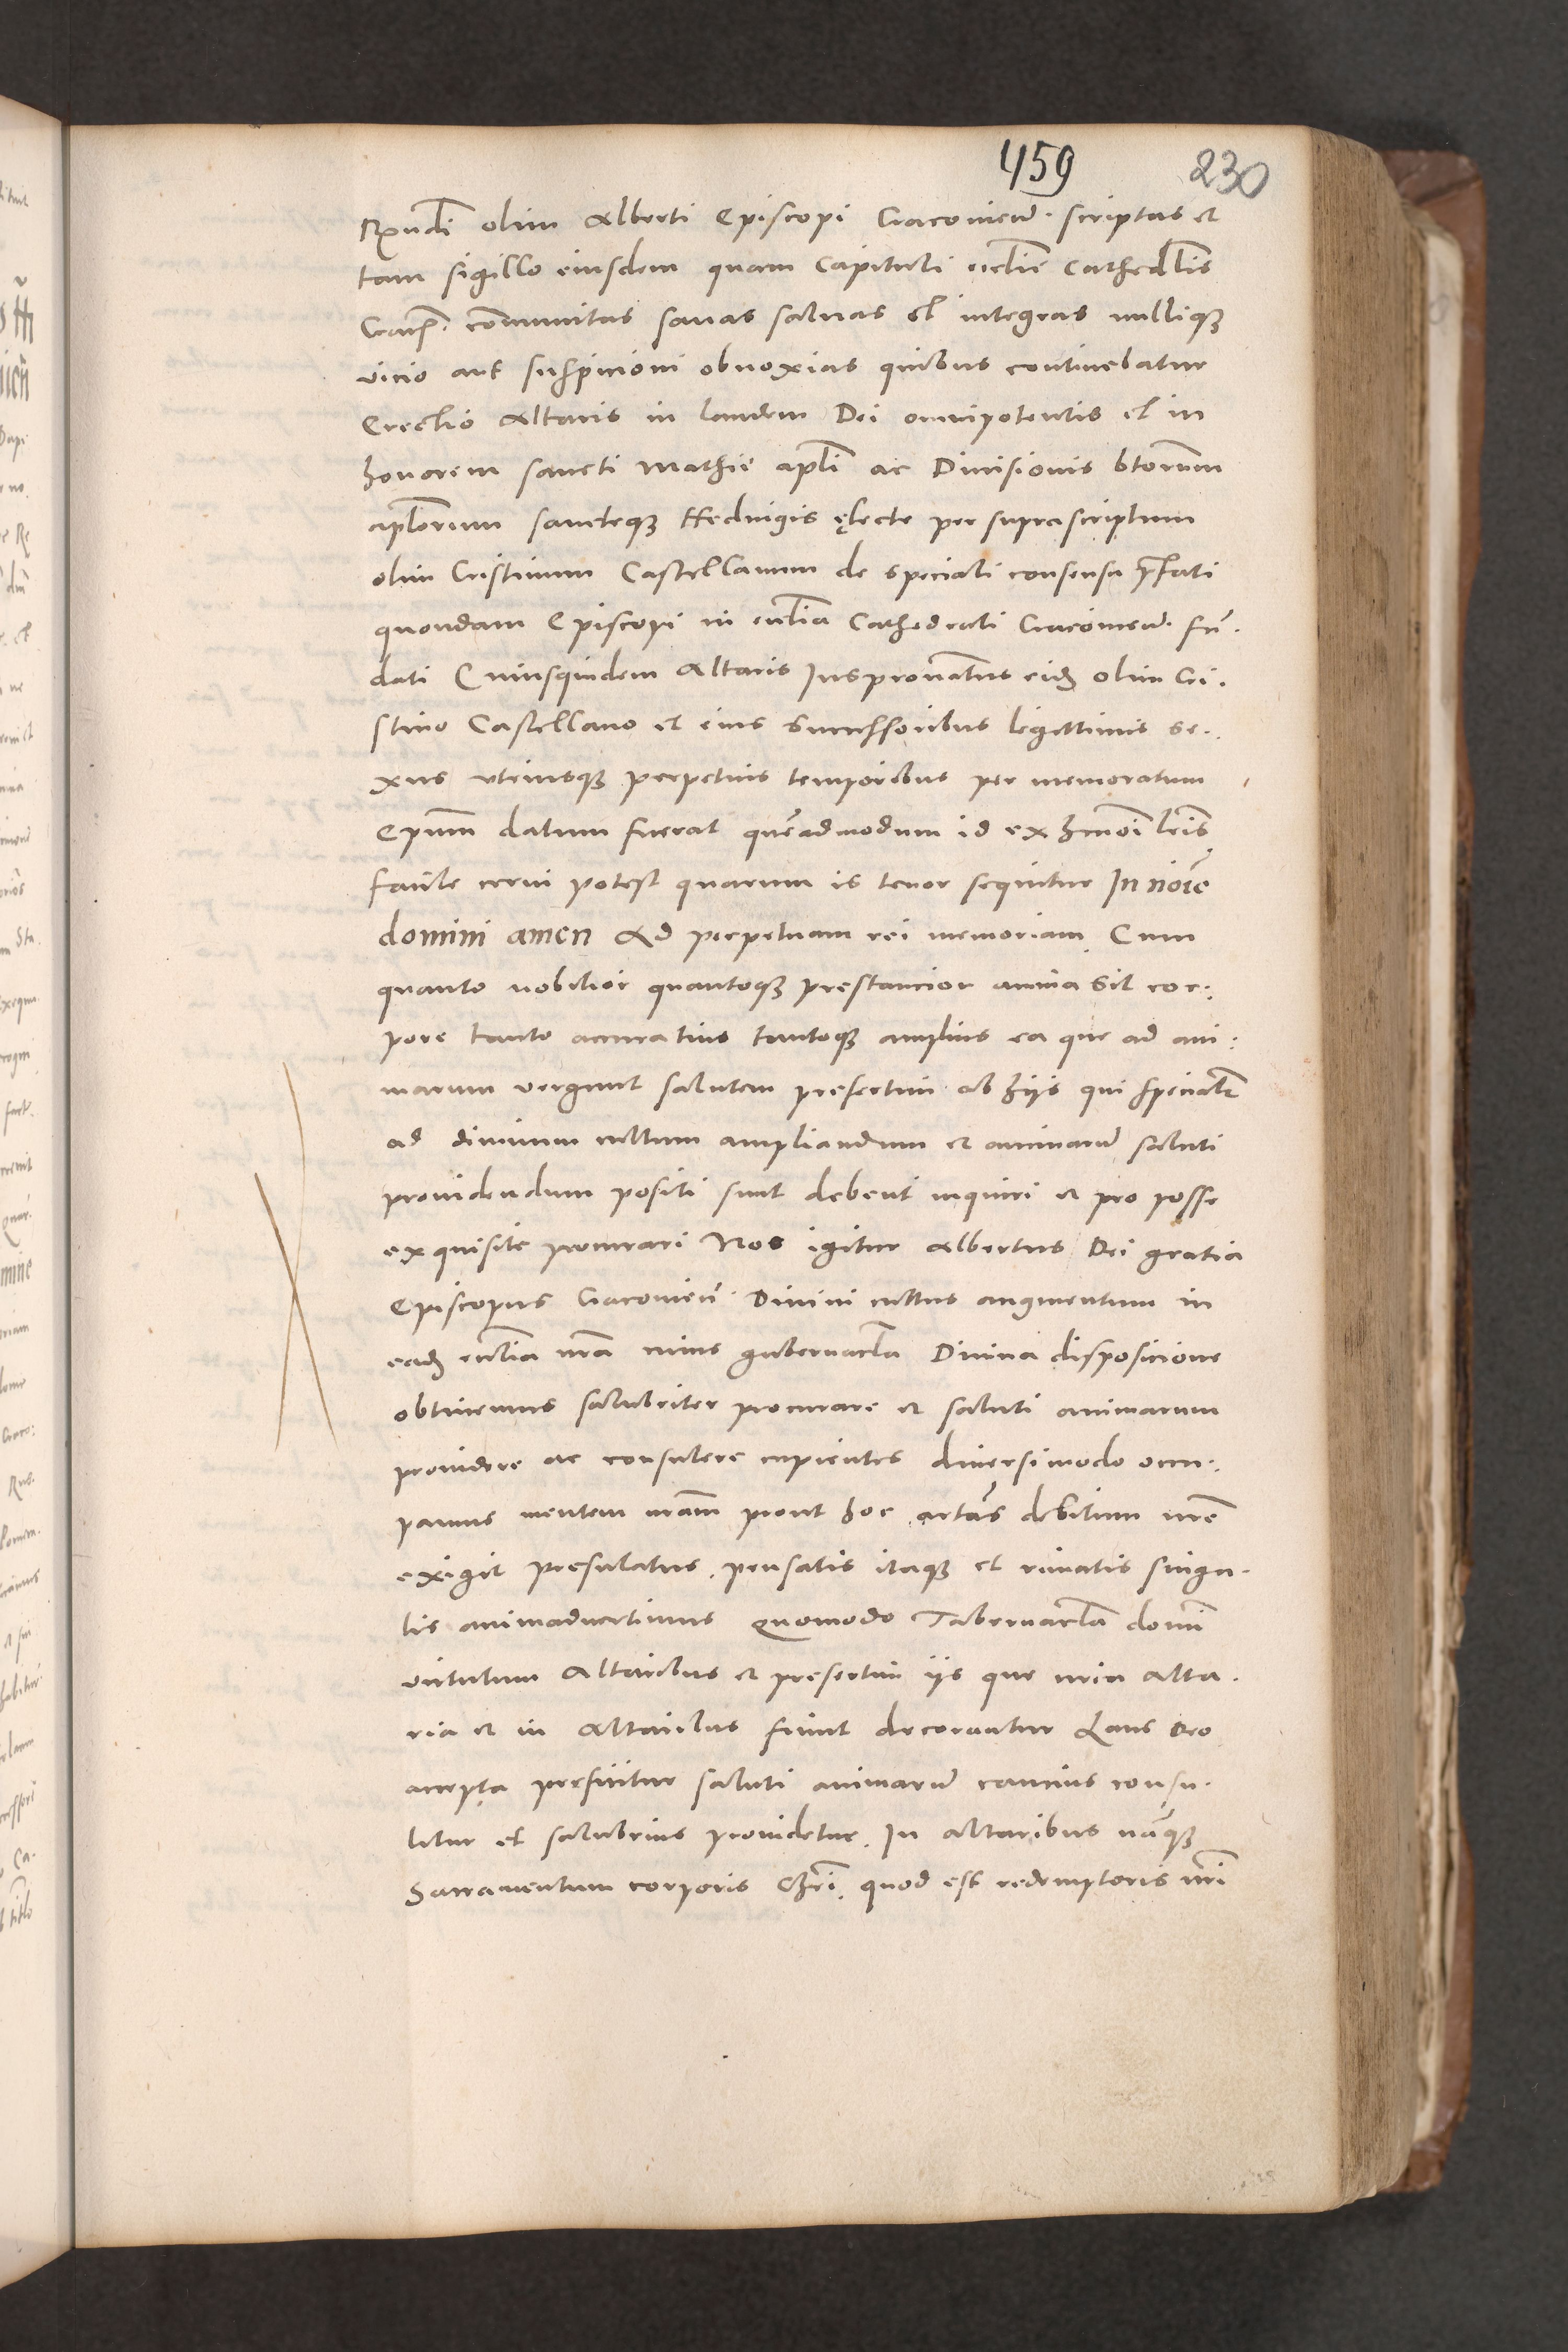 459 230
Rndi olim Alberti Episcopi Cracovien̄. scriptas et
tam sigillo eiusdem quam Capituli ecclīe Cathedlis
Crac̄. com̄munitas sanas saluas et integras nullique
vicio aut suspicioni obnoxias quibus continebatur
Erectio Altaris in laudem Dei omnipotentis et in
honorem sancti Mathie apl̄i ac Diuisionis bt̄orum
apl̄orum sancteque Heduigis ęlecte per suprascriptum
olim Cristinum Castellanum de speciali consensu p̄fati
quondam Episcopi in eccl̄ia Cathedrali Cracovien̄. fū.
dati Cuiusquidem Altaris Iuspatronatus eidem olim Cri.
stino Castellano et eius Successoribus legittimis se.
xus vtriusque perpetuis temporibus per memoratum
Ep̄um datum fuerat quēadmodum id ex hm̄oi lr̄is
facile cerni potest quarum is tenor sequitur In noīe
domini amen Ad perpetuam rei memoriam Cum
quanto nobilior quantoque prestancior anima sit cor:
pore tanto accuratius tantoque amplius ea que ad ani:
marum vergunt salutem presertim ab hijs qui specialr̄
ad diuinum cultum ampliandum et animarū saluti
prouidendum positi sunt debent inquiri et pro posse
exquisite procurari Nos igitur Albertus Dei gratia
Episcopus Cracovien̄. Diuini cultus augmentum in
eadem eccl̄ia nr̄a cuius gubernacl̄a Diuina disposicione
obtinemus salubriter procurare et saluti animarum
prouidere ac consulere cupientes diuersimodo occu:
pamus mentem nr̄am prout hoc debitum nr̄e
exigit presulatus. pensatis itaque et rimatis singu.
lis animaduertimus Quomodo Tabernacl̄a domī
virtutum Altaribus et presertim ijs que circa alta.
ria et in Altaribus fiunt decorantur Laus Deo
accepta preficitur saluti animarū caucius consu.
litur et salubrius prouidetur. In altaribus nāque
Sacramentum corporis Chr̄i. quod est redemptoris nr̄i